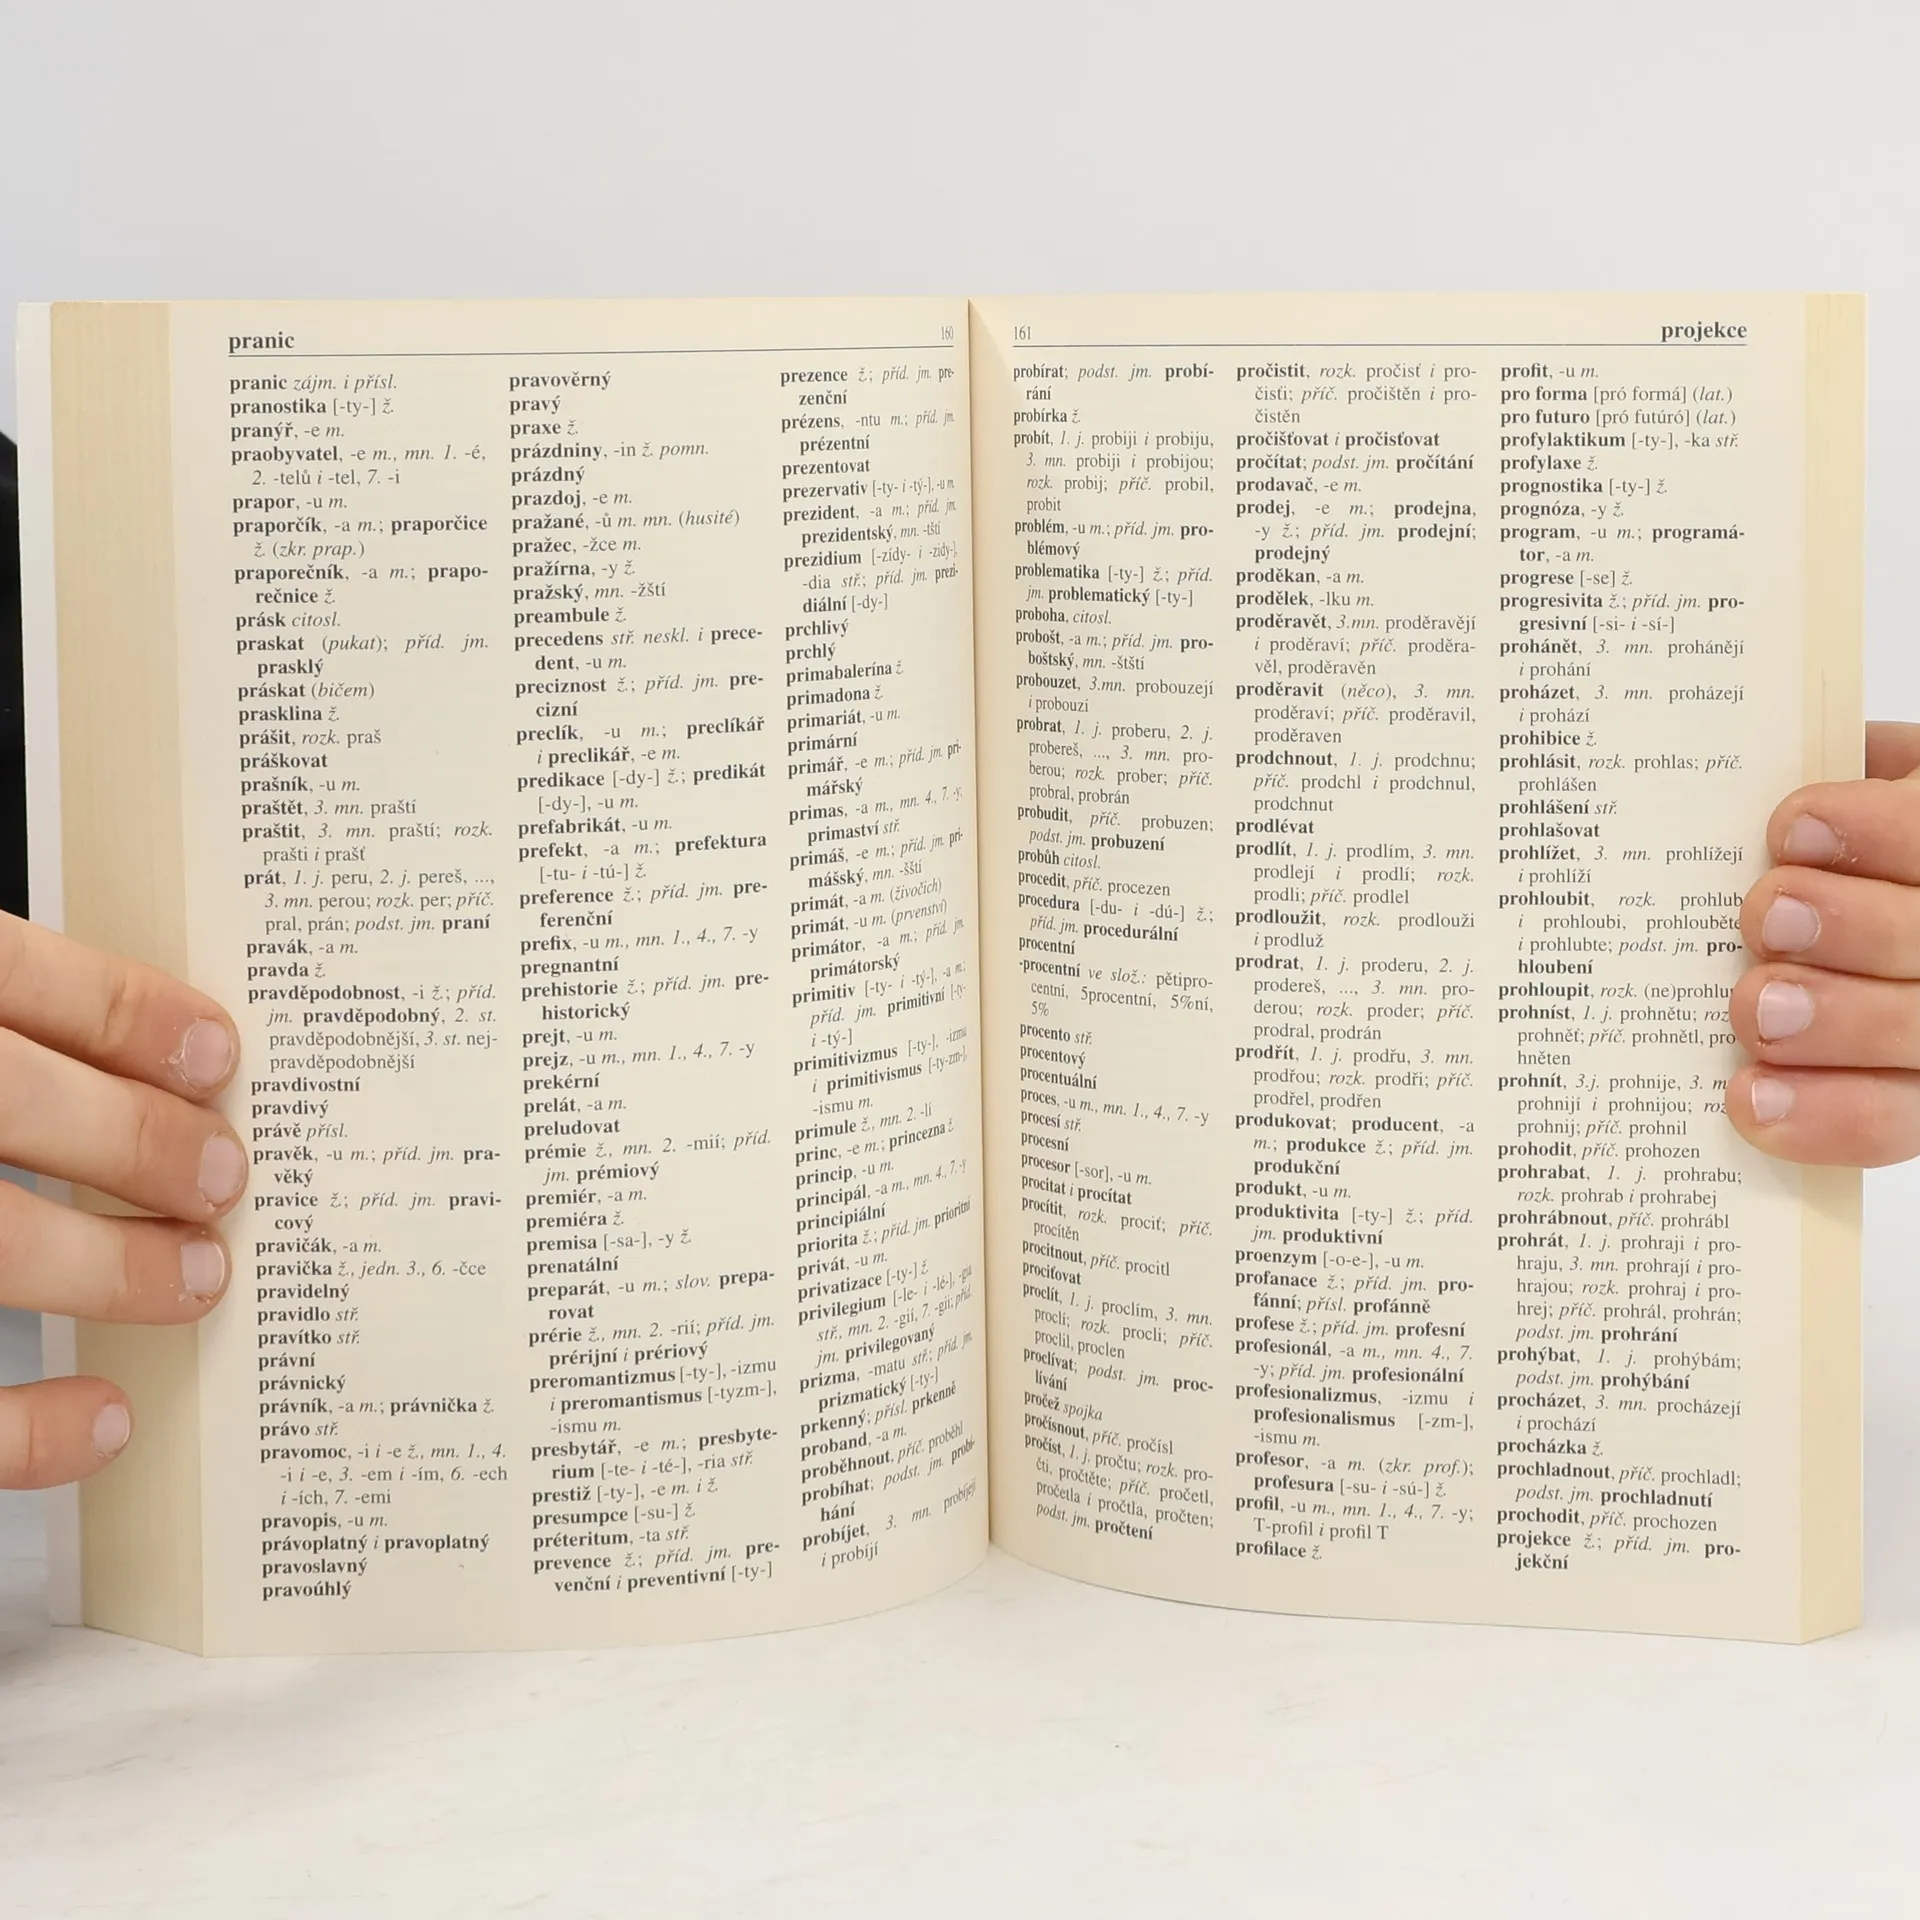 pranic
160
pranic zájm. i přísl.
pranostika [-ty-] ž.
pranýř, -e m.
praobyvatel, -e m., mn. 1. -é,
2. -telů i -tel, 7. -i
prapor, -u m.
praporčík, -a m.; praporčice
ž. (zkr. prap.)
praporečník, -a m.; prapo-
rečnice ž.
prásk citosl.
praskat (pukat); příd. jm.
prasklý
práskat (bičem)
prasklina ž.
prášit, rozk. praš
práškovat
prašník, -u m.
praštět, 3. mn. praští
praštit, 3. mn. praští; rozk.
prašti i prašť
prát, 1. j. peru, 2. j. pereš, ...,
3. mn. perou; rozk. per; příč.
pral, prán; podst. jm. praní
pravák, -a m.
pravda ž.
pravděpodobnost, -i ž.; příd.
jm. pravděpodobný, 2. st.
pravděpodobnější, 3. st. nej-
pravděpodobnější
pravdivostní
pravdivý
právě přísl.
pravěk, -u m.; příd. jm. pra-
věký
pravice ž.; příd. jm. pravi-
cový
pravičák, -a m.
pravička ž., jedn. 3., 6. -čce
pravidelný
pravidlo stř.
pravítko stř.
právní
právnický
právník, -a m.; právnička ž.
právo stř.
pravomoc, -i i -e ž., mn. 1., 4.
-i i -e, 3. -em i -ím, 6. -ech
i -ích, 7. -emi
pravopis, -u m.
právoplatný i pravoplatný
pravoslavný
pravoúhlý
pravověrný
pravý
praxe ž.
prázdniny, -in ž. pomn.
prázdný
prazdroj, -e m.
pražané, -ů m. mn. (husité)
pražec, -žce m.
pražírna, -y ž.
pražský, mn. -žští
preambule ž.
precedens stř. neskl. i prece-
dent, -u m.
preciznost ž.; příd. jm. pre-
cizní
preclík, -u m.; preclíkář
i preclikář, -e m.
predikace [-dy-] ž.; predikát
[-dy-], -u m.
prefabrikát, -u m.
prefekt, -a m.; prefektura
[-tu- i -tú-] ž.
preference ž.; příd. jm. pre-
ferenční
prefix, -u m., mn. 1., 4., 7. -y
pregnantní
prehistorie ž.; příd. jm. pre-
historický
prejt, -u m.
prejz, -u m., mn. 1., 4., 7. -y
prekérní
prelát, -a m.
preludovat
prémie ž., mn. 2. -mií; příd.
jm. prémiový
premiér, -a m.
premiéra ž.
premisa [-sa-], -y ž.
prenatální
preparát, -u m.; slov. prepa-
rovat
prérie ž., mn. 2. -rií; příd. jm.
prérijní i prériový
preromantizmus [-ty-], -izmu
i preromantismus [-tyzm-],
-ismu m.
presbytář, -e m.; presbyte-
rium [-te- i -té-], -ria stř.
prestiž [-ty-], -e m. i ž.
presumpce [-su-] ž.
préteritum, -ta stř.
prevence ž.; příd. jm. pre-
venční i preventivní [-ty-]
prezence ž.; příd. jm. pre-
zenční
prézens, -ntu m.; příd. jm.
prézentní
prezentovat
prezervativ [-ty- i -tý-], -u m.
prezident, -a m.; příd. jm.
prezidentský, mn. -tští
prezidium [-zídy- i -zidy-],
-dia stř.; příd. jm. prezi-
diální [-dy-]
prchlivý
prchlý
primabalerína ž.
primadona ž.
primariát, -u m.
primární
primář, -e m.; příd. jm. pri-
mářský
primas, -a m., mn. 4., 7. -y;
primaství stř.
primáš, -e m.; příd. jm. pri-
mášský, mn. -šští
primát, -a m. (živočich)
primát, -u m. (prvenství)
primátor, -a m.; příd. jm.
primátorský
primitiv [-ty- i -tý-], -a m.;
příd. jm. primitivní [-ty-
i -tý-]
primitivizmus [-ty-], -izmu
i primitivismus [-ty-zm-],
-ismu m.
primule ž., mn. 2. -lí
princ, -e m.; princezna ž.
princip, -u m.
principál, -a m., mn. 4., 7. -y
principiální
priorita ž.; příd. jm. prioritní
privát, -u m.
privatizace [-ty-] ž.
privilegium [-le- i -lé-], -gia
stř., mn. 2. -gií, 7. -gii; příd.
jm. privilegovaný
prizma, -matu stř.; příd. jm.
prizmatický [-ty-]
prkenný; přísl. prkenně
proband, -a m.
proběhnout, příč. proběhl
probíhat; podst. jm. probí-
hání
probíjet, 3. mn. probíjejí
i probíjí
161
projekce
probírat; podst. jm. probí-
rání
probírka ž.
probít, 1. j. probiji i probiju,
3. mn. probijí i probijou;
rozk. probij; příč. probil,
probit
problém, -u m.; příd. jm. pro-
blémový
problematika [-ty-] ž.; příd.
jm. problematický [-ty-]
proboha, citosl.
probošt, -a m.; příd. jm. pro-
boštský, mn. -štští
probouzet, 3.mn. probouzejí
i probouzí
probrat, 1. j. proberu, 2. j.
probereš, ..., 3. mn. pro-
berou; rozk. prober; příč.
probral, probrán
probudit, příč. probuzen;
podst. jm. probuzení
probůh citosl.
procedit, příč. procezen
procedura [-du- i -dú-] ž.;
příd. jm. procedurální
procentní
-procentní ve slož.: pětipro-
centní, 5procentní, 5%ní,
5%
procento stř.
procentový
procentuální
proces, -u m., mn. 1., 4., 7. -y
procesí stř.
procesní
procesor [-sor], -u m.
procitat i procítat
procítit, rozk. prociť; příč.
procítěn
procitnout, příč. procitl
prociťovat
proclít, 1. j. proclím, 3. mn.
proclí; rozk. procli; příč.
proclil, proclen
proclívat; podst. jm. proc-
lívání
pročež spojka
pročísnout, příč. pročísl
pročíst, 1. j. pročtu; rozk. pro-
čti, pročtěte; příč. pročetl,
pročetla i pročtla, pročten;
podst. jm. pročtení
pročistit, rozk. pročisť i pro-
čisti; příč. pročištěn i pro-
čistěn
pročišťovat i pročisťovat
pročítat; podst. jm. pročítání
prodavač, -e m.
prodej, -e m.; prodejna,
-y ž.; příd. jm. prodejní;
prodejný
proděkan, -a m.
prodělek, -lku m.
proděravět, 3.mn. proděravějí
i proděraví; příč. proděra-
věl, proděravěn
proděravit (něco), 3. mn.
proděraví; příč. proděravil,
proděraven
prodchnout, 1. j. prodchnu;
příč. prodchl i prodchnul,
prodchnut
prodlévat
prodlít, 1. j. prodlím, 3. mn.
prodlejí i prodlí; rozk.
prodli; příč. prodlel
prodloužit, rozk. prodlouži
i prodluž
prodrat, 1. j. proderu, 2. j.
prodereš, ..., 3. mn. pro-
derou; rozk. proder; příč.
prodral, prodrán
prodřít, 1. j. prodřu, 3. mn.
prodřou; rozk. prodři; příč.
prodřel, prodřen
produkovat; producent, -a
m.; produkce ž.; příd. jm.
produkční
produkt, -u m.
produktivita [-ty-] ž.; příd.
jm. produktivní
proenzym [-o-e-], -u m.
profanace ž.; příd. jm. pro-
fánní; přísl. profánně
profese ž.; příd. jm. profesní
profesionál, -a m., mn. 4., 7.
-y; příd. jm. profesionální
profesionalizmus, -izmu i
profesionalismus [-zm-],
-ismu m.
profesor, -a m. (zkr. prof.);
profesura [-su- i -sú-] ž.
profil, -u m., mn. 1., 4., 7. -y;
T-profil i profil T
profilace ž.
profit, -u m.
pro forma [pró formá] (lat.)
pro futuro [pró futúró] (lat.)
profylaktikum [-ty-], -ka stř.
profylaxe ž.
prognostika [-ty-] ž.
prognóza, -y ž.
program, -u m.; programá-
tor, -a m.
progrese [-se] ž.
progresivita ž.; příd. jm. pro-
gresivní [-si- i -sí-]
prohánět, 3. mn. prohánějí
i prohání
proházet, 3. mn. proházejí
i prohází
prohibice ž.
prohlásit, rozk. prohlas; příč.
prohlášen
prohlášení stř.
prohlašovat
prohlížet, 3. mn. prohlížejí
i prohlíží
prohloubit, rozk. prohlub
i prohloubi, prohlouběte
i prohlubte; podst. jm. pro-
hloubení
prohloupit, rozk.
prohníst, 1. j. prohnětu;
prohněť; příč. prohnětl, pro-
hněten
prohnít, 3.j. prohnije, 3.
prohnijí i prohnijou;
prohnij; příč. prohnil
prohodit, příč. prohozen
prohrabat, 1. j. prohrabu;
rozk. prohrab i prohrabej
prohrábnout, příč. prohrábl
prohrát, 1. j. prohraji i pro-
hraju, 3. mn. prohrají i pro-
hrajou; rozk. prohraj i pro-
hrej; příč. prohrál, prohrán;
podst. jm. prohrání
prohýbat, 1. j. prohýbám;
podst. jm. prohýbání
procházet, 3. mn. procházejí
i prochází
procházka ž.
prochladnout, příč. prochladl;
podst. jm. prochladnutí
prochodit, příč. prochozen
projekce ž.; příd. jm. pro-
jekční